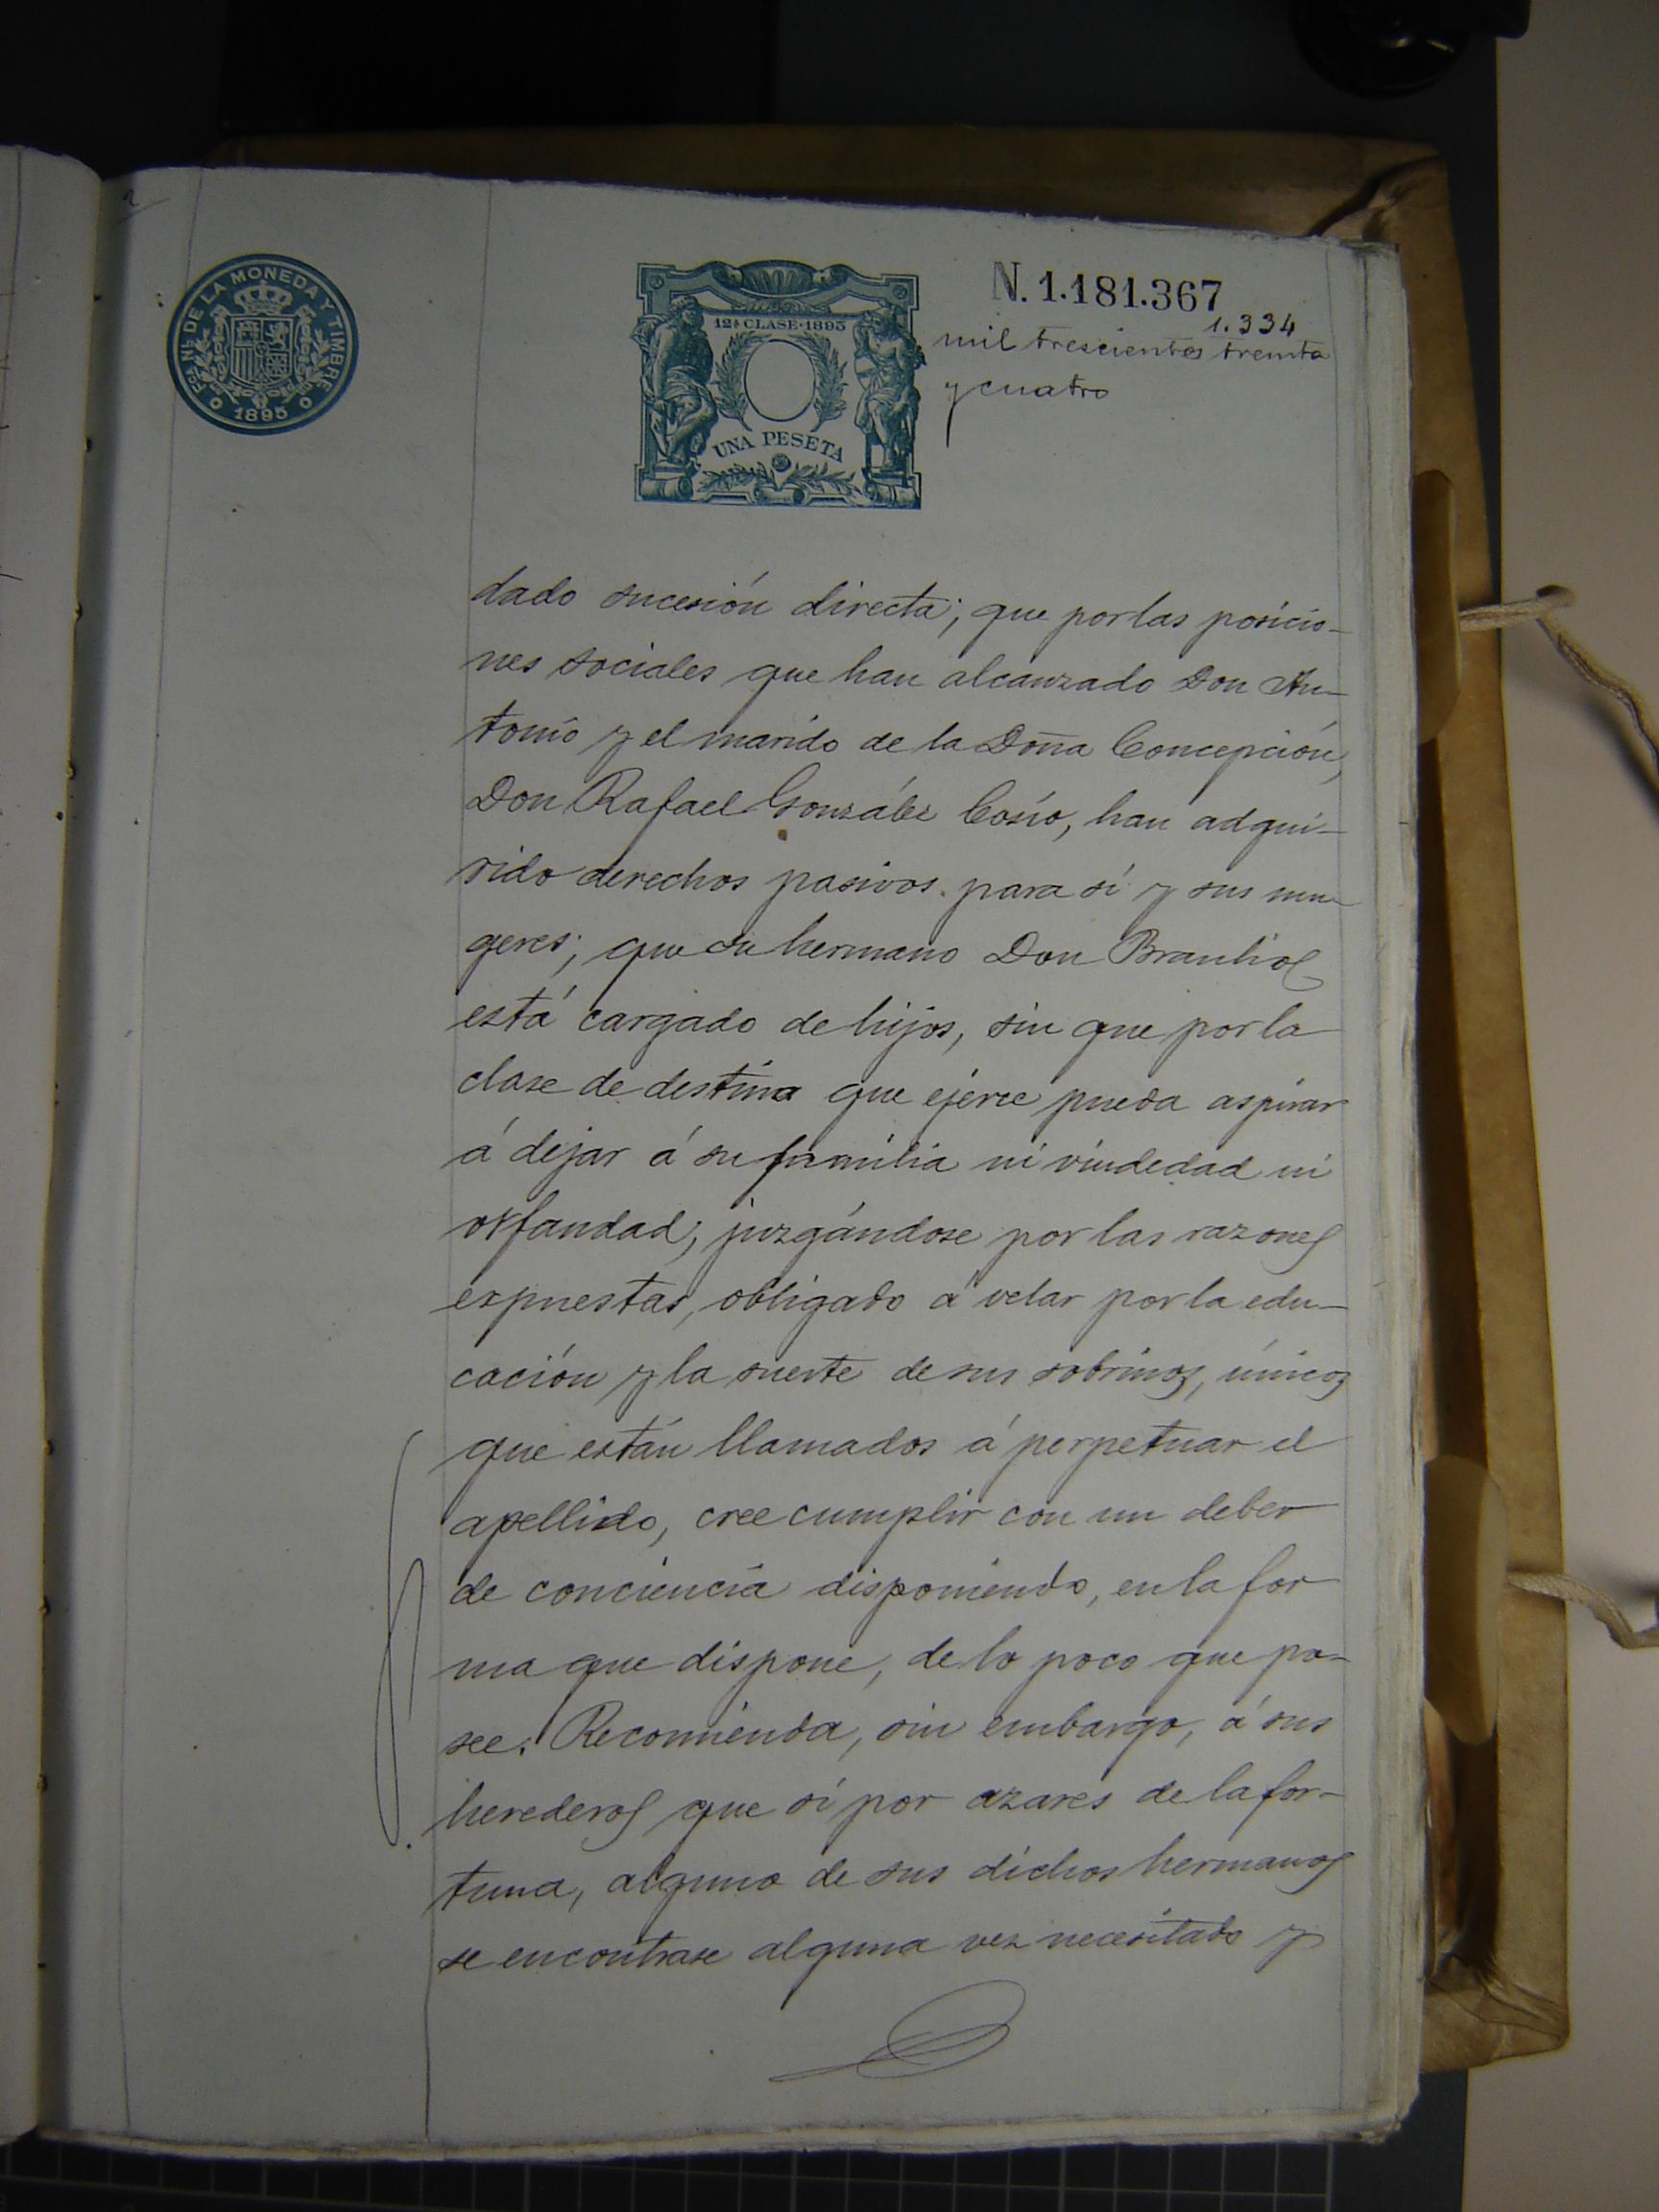 2
FCA. NL. DE LA MONEDA Y TIMBRE
1895
12ª CLASE·1895
UNA PESETA
N. 1.181.367
1.334
mil trescientos treinta
y cuatro
dado sucesión directa; que por las posicio-
nes sociales que han alcanzado Don An-
tonio y el marido de la Doña Concepción,
Don Rafael González Cosío, han adqui-
rido derechos pasivos para sí y sus mu-
geres; que su hermano Don Braulio
está cargado de hijos, sin que por la
clase de destino que ejerce pueda aspirar
á dejar á su familia ni viudedad ni
orfandad; juzgándose por las razones
expuestas, obligado á velar por la edu-
cación y la suerte de sus sobrinos, únicos
que están llamados á perpetuar el
apellido, cree cumplir con un deber
de conciencia disponiendo, en la for
ma que dispone, de lo poco que po-
see. Recomienda, sin embargo, á sus
herederos que si por azares de la for-
tuna, alguno de sus dichos hermanos
se encontrase alguna vez necesitado y